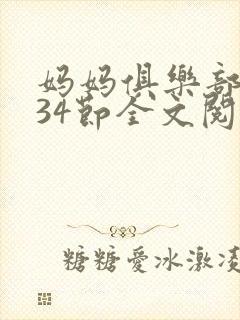 妈妈俱樂部
34節全文閱
糖糖愛冰激凌